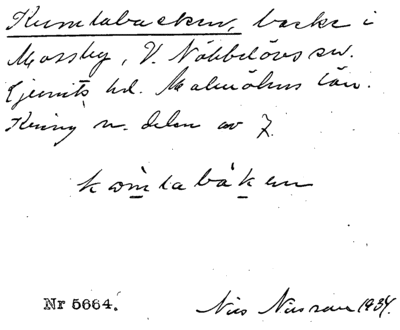 Kumlabacken, backe i
Mossby, V. Nöbbelövs sn.
Ljunits hd. Malmöhus län.
Kring n. delen av 7.
kom̀labáken
Nr 5664.
Nils Nilsson 1934.